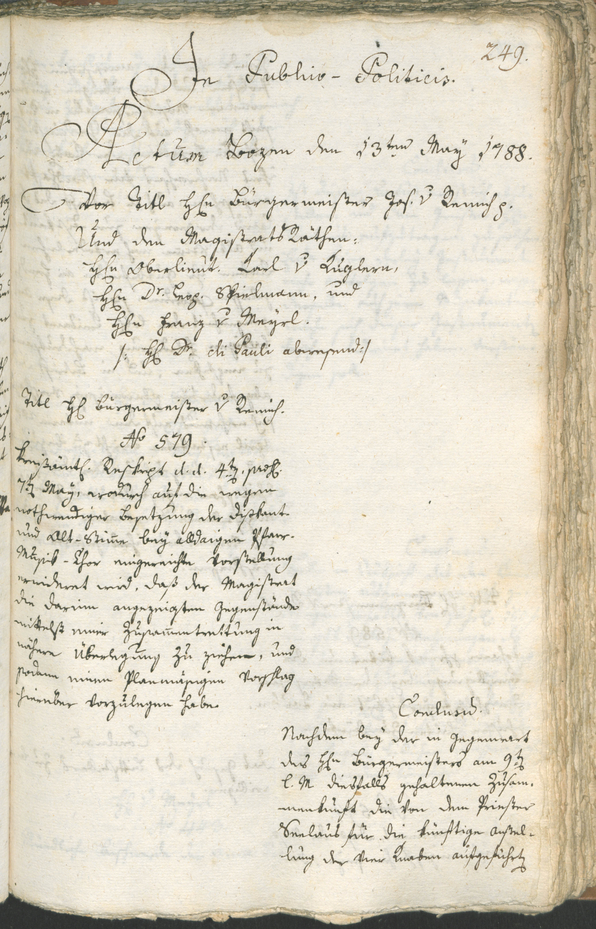 249.
In Publico-Politicis.
Actum Bozen den 13ten May 1788.
Vor Titl Hln Bürgermeister Jos. v Remich p.
Und den Magistrats Räthen:
Hln Oberlieut. Carl v Kuglern,
Hln Dr. Leop. Spielmann, und
Hln Franz v Mayrl.
/: Hl Dr. di Pauli abwesend :/
Titl Hl Bürgermeister v Remich.
No 579.
Kreisämtl. Reskript d.d. 4t, pres.
7t May, wodurch auf die wegen
nothwendiger Besetzung der Diskant-
und Alt-Stime bey alldaigen Pfarr-
Musik-Chor eingereichte Vorstellung
erwideret wird, daß der Magistrat
die darinn angezeigten Gegenstände
mittelst einer Zusammtrettung in
nähere Überlegung zu ziehen, und
sodann einen Planmäsigen Vorschlag
hierüber vorzulegen habe.
Conclusum.
Nachdem bey der in Gegenwart
des Hln Bürgermeisters am 9t
l. M. diesfalls gehaltenen Zusam-
menkunft die von dem Priester
Seelaus für die künftige Anstel-
lung der vier Knaben aufgeführt